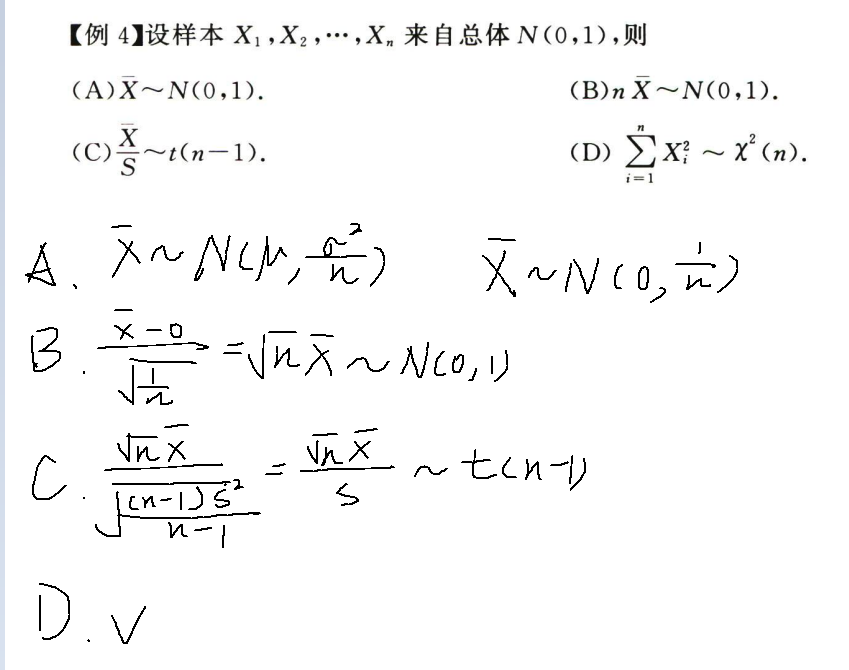 【例 4】设样本 X₁,X₂,…,Xₙ 来自总体 N(0,1),则
(A) X̄~N(0,1). (B) n X̄~N(0,1).
(C) X̄/S~t(n-1). (D) ∑ᵢ₌₁ⁿ Xᵢ² ~ χ²(n).
A. X̄~N(μ, σ²/n) X̄~N(0, 1/n)
B. (x̄-0)/√(1/n) = √n x̄ ~ N(0,1)
C. √n x̄/√((n-1)S²/(n-1)) = √n x̄/S ~ t(n-1)
D. √